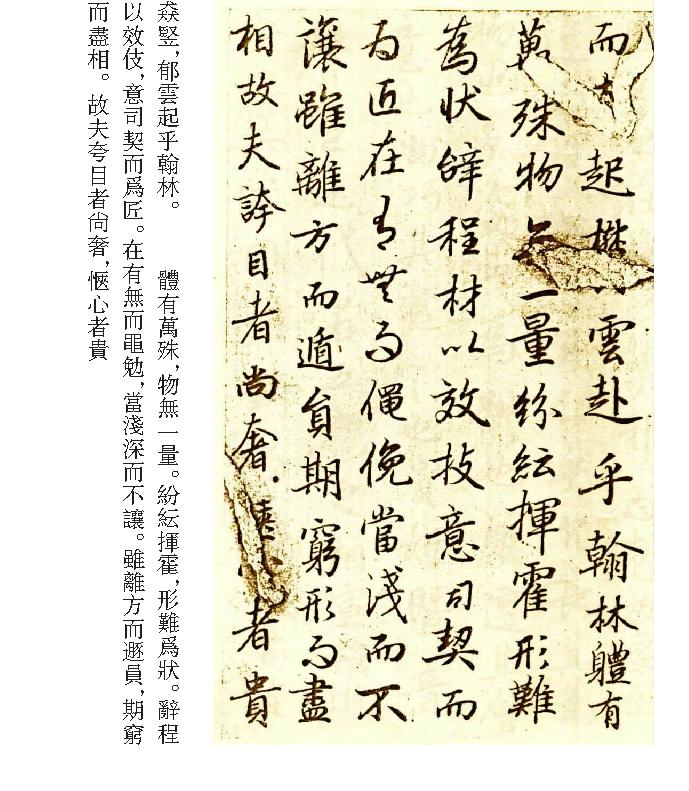 而起雲赴乎翰林體有
萬殊物無一量紛紜揮霍形難
為狀辭程材以效技意司契而
為匠在有無而僶俛當淺而不
讓雖離方而遁員期窮形而盡
相故夫誇目者尚奢愜心者貴
猋竪,郁雲起乎翰林。 體有萬殊,物無一量。紛紜揮霍,形難爲狀。辭程
以效伎,意司契而爲匠。在有無而黽勉,當淺深而不讓。雖離方而遯員,期窮
而盡相。故夫夸目者尙奢,愜心者貴